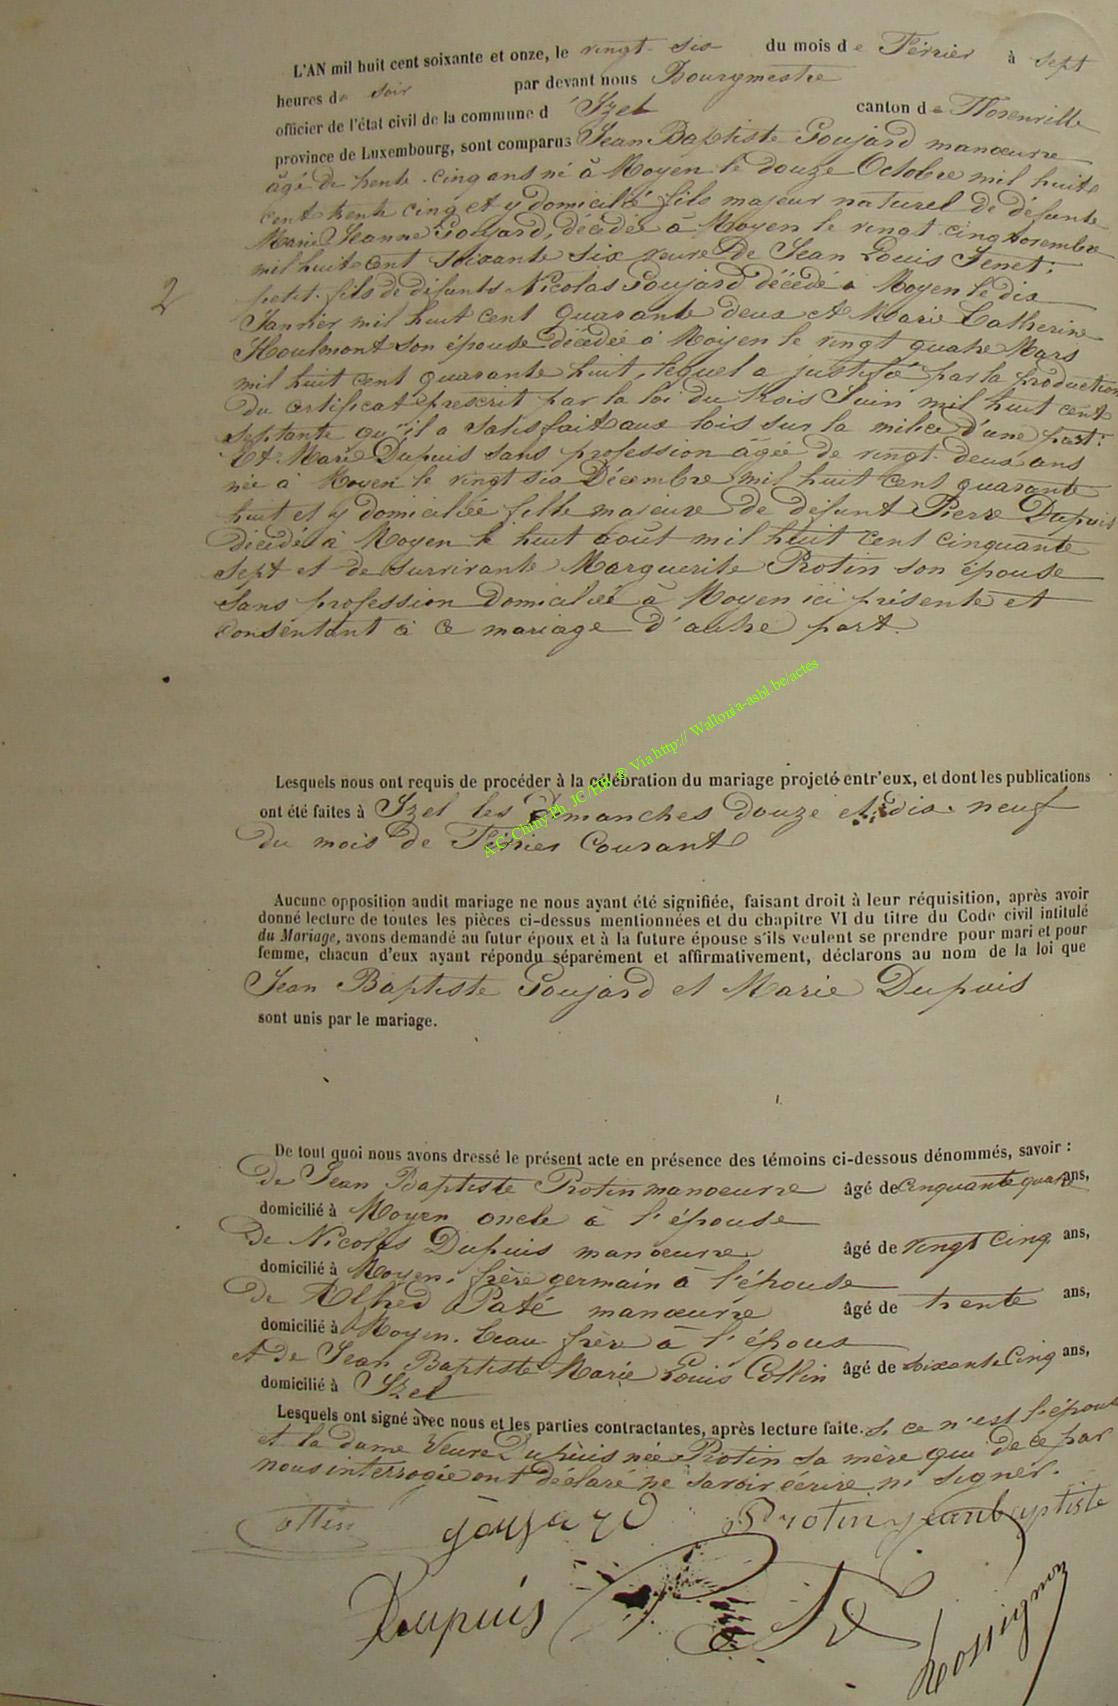 L'AN mil huit cent soixante et onze, le vingt-six du mois de Février à sept
heures du soir par devant nous Bourgmestre
officier de l'état civil de la commune d'Izel canton de Florenville
province de Luxembourg, sont comparus Jean Baptiste Goujard manœuvre
âgé de trente-cinq ans né à Moyen le douze Octobre mil huit
cent trente cinq et y domicilié fils majeur naturel de défunte
Marie Jeanne Goujard, décédée à Moyen le vingt cinq novembre
mil huit cent soixante six veuve de Jean Louis Jenet;
petit-fils de défunts Nicolas Goujard décédé à Moyen le dix
Janvier mil huit cent quarante deux et Marie Catherine
Houlmont son épouse décédée à Moyen le vingt quatre Mars
mil huit cent quarante huit, lequel a justifié par la production
du certificat prescrit par la loi du trois Juin mil huit cent
septante qu'il a satisfait aux lois sur la milice d'une part:
Et Marie Dupuis sans profession âgée de vingt-deux ans
née à Moyen le vingt six Décembre mil huit cent quarante
huit et y domiciliée fille majeure de défunt Pierre Dupuis
décédé à Moyen le huit août mil huit cent cinquante
sept et de survivante Marguerite Protin son épouse
sans profession domiciliée à Moyen ici présente et
consentant à ce mariage d'autre part.
2
Lesquels nous ont requis de procéder à la célébration du mariage projeté entr'eux, et dont les publications
ont été faites à Izel les dimanches douze et dix-neuf
du mois de Février courant
A.C. Chiny Ph. JC /HB ® Via http:// Wallonia-asbl.be/actes
Aucune opposition audit mariage ne nous ayant été signifiée, faisant droit à leur réquisition, après avoir
donné lecture de toutes les pièces ci-dessus mentionnées et du chapitre VI du titre du Code civil intitulé
du Mariage, avons demandé au futur époux et à la future épouse s'ils veulent se prendre pour mari et pour
femme, chacun d'eux ayant répondu séparément et affirmativement, déclarons au nom de la loi que
Jean Baptiste Goujard et Marie Dupuis
sont unis par le mariage.
De tout quoi nous avons dressé le présent acte en présence des témoins ci-dessous dénommés, savoir :
de Jean Baptiste Protin manœuvre âgé de cinquante quatre ans,
domicilié à Moyen oncle à l'épouse
de Nicolas Dupuis manœuvre âgé de vingt cinq ans,
domicilié à Moyen, frère germain à l'épouse
de Alfred Paté manœuvre âgé de trente ans,
domicilié à Moyen. beau-frère à l'époux
et de Jean Baptiste Marie Louis Collin âgé de soixante cinq ans,
domicilié à Izel
Lesquels ont signé avec nous et les parties contractantes, après lecture faite. si ce n'est l'épouse
et la dame veuve Dupuis née Protin sa mère qui de ce par
nous interrogée ont déclaré ne savoir écrire ni signer.
Collin goujard Protin jeanbaptiste
Dupuis Rossignon